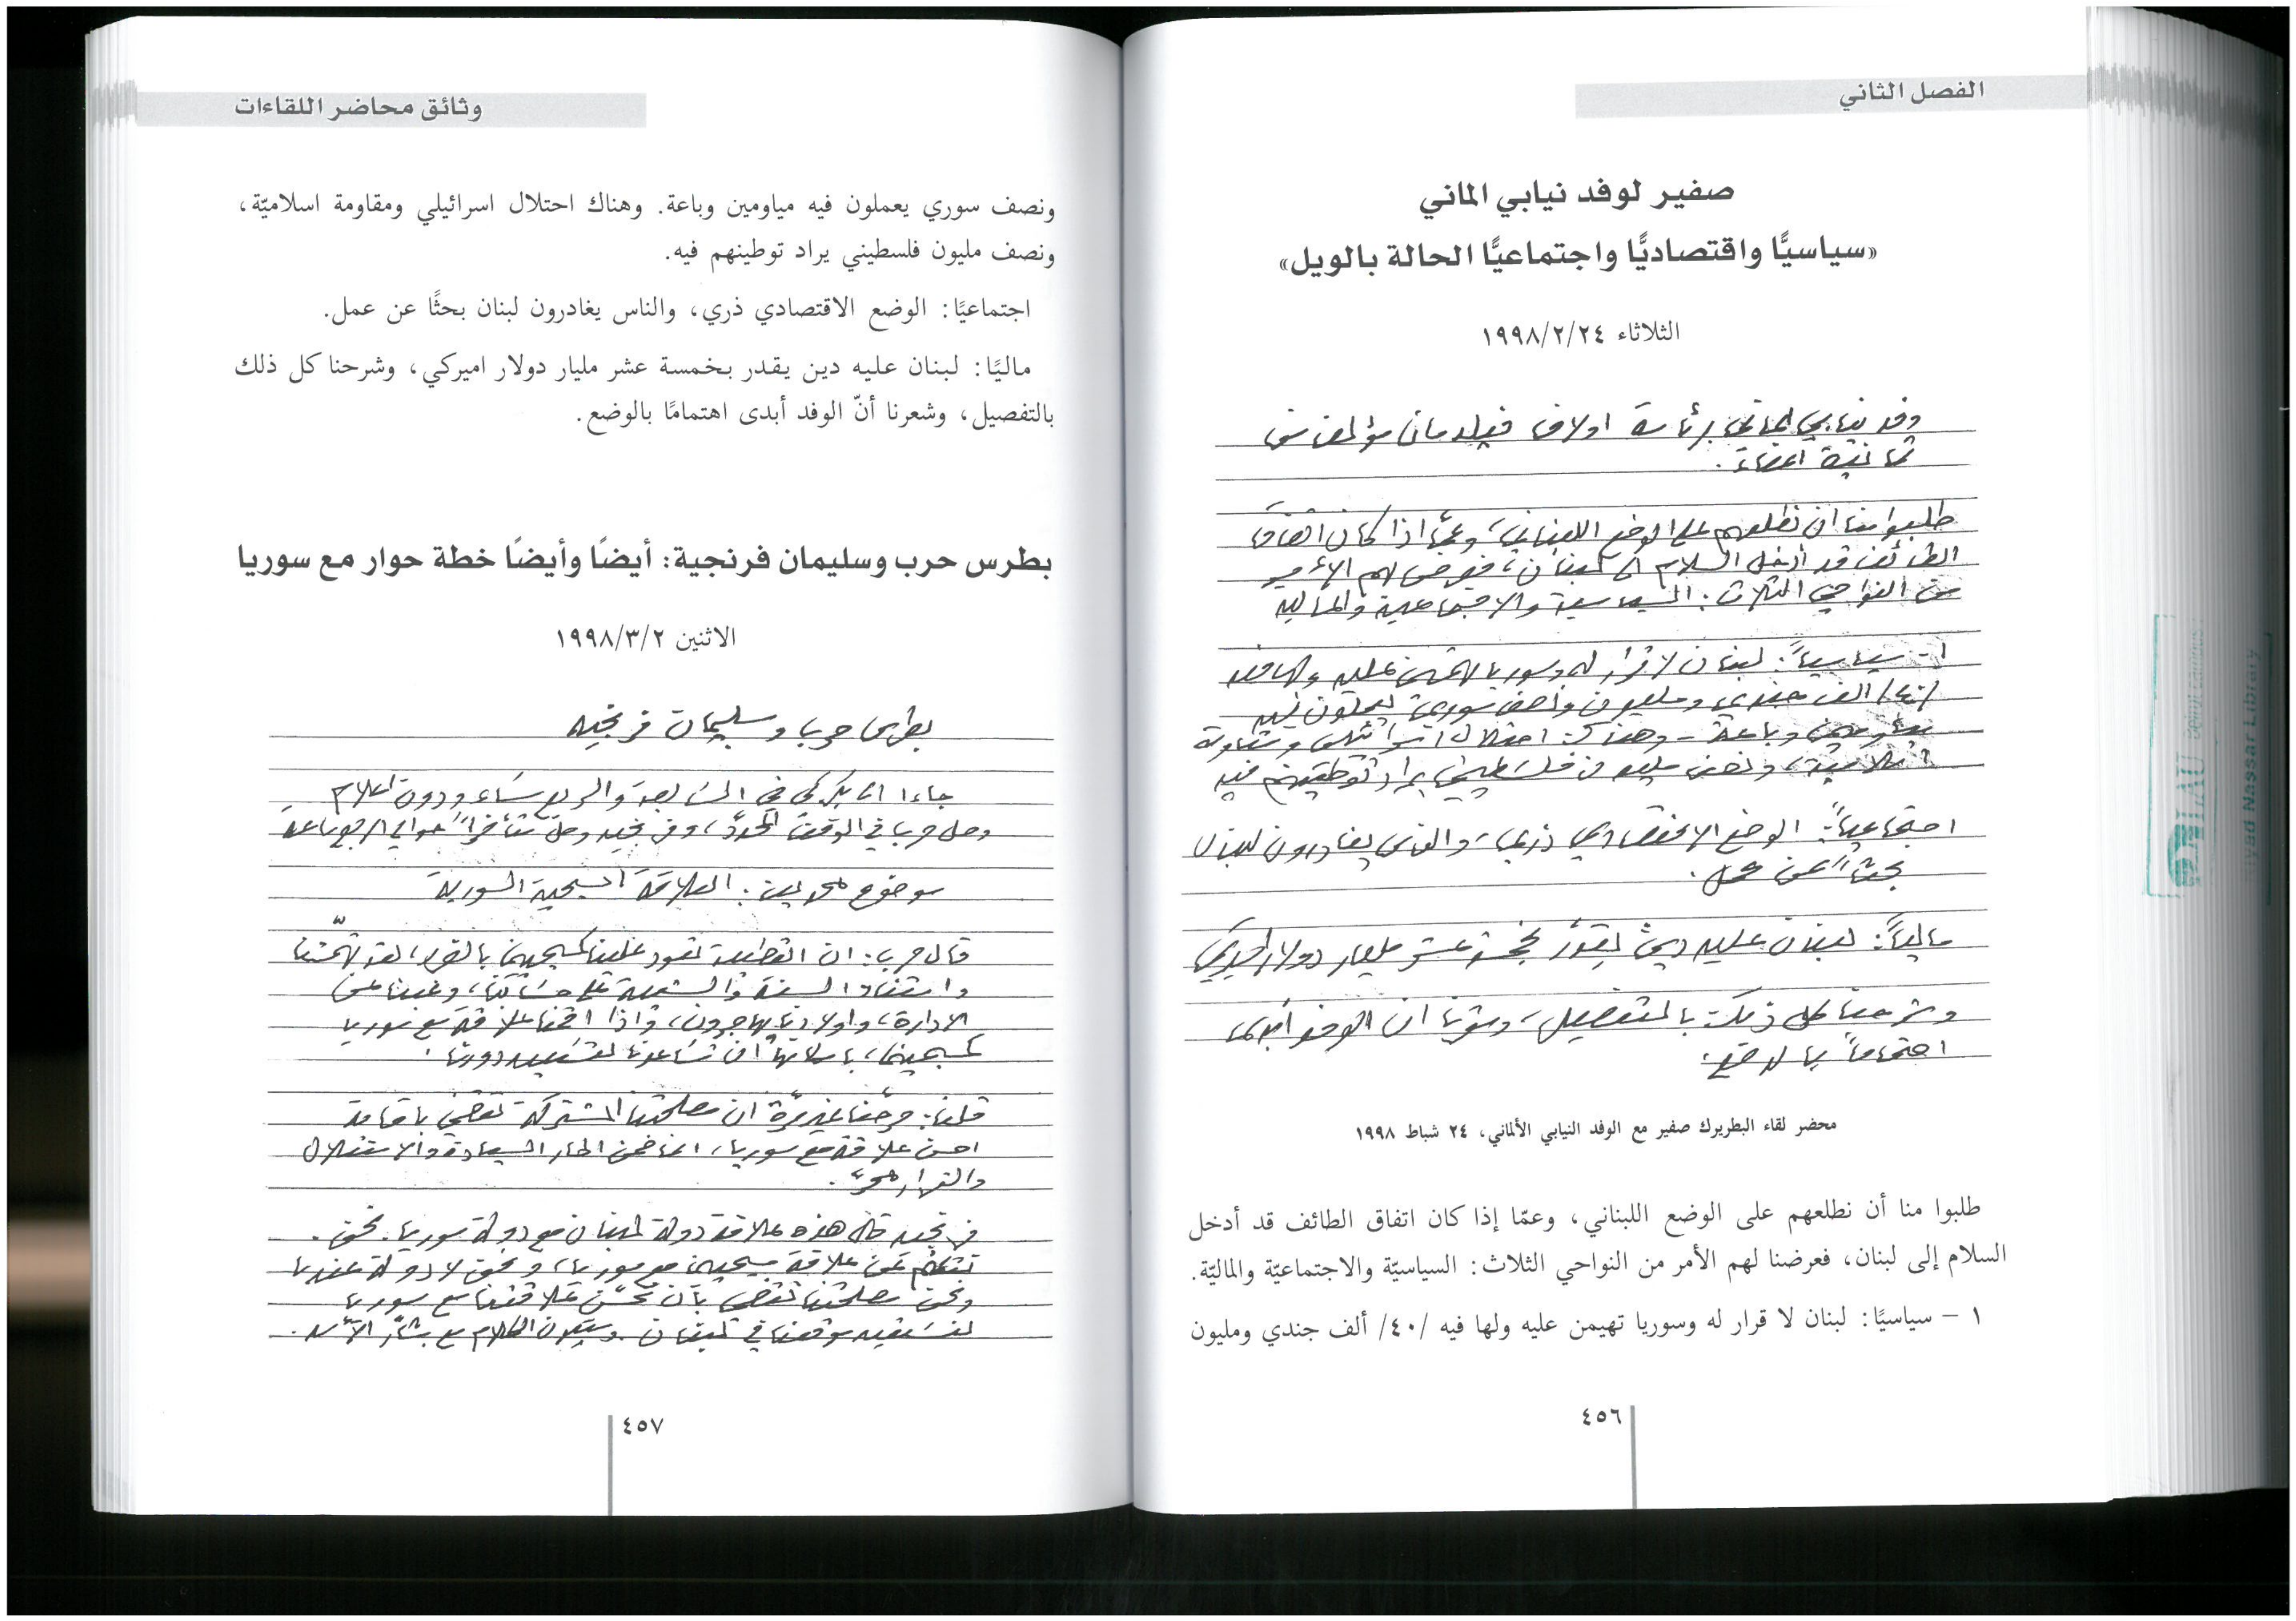 الفصل الثاني
صفير لوفد نيابي الماني
«سياسيًّا واقتصاديًّا واجتماعيًّا الحالة بالويل»
الثلاثاء ١٩٩٨/٢/٢٤
وفد نيابي الماني برئاسة اولاف فيلدمان مؤلف من
ثمانية اعضاء.
طلبوا منا ان نطلعهم على الوضع اللبناني، وعمّا اذا كان اتفاق
الطائف قد أدخل السلام الى لبنان، فعرضنا لهم الأمر
من النواحي الثلاث: السياسية والاجتماعية والمالية
١ - سياسياً: لبنان لا قرار له وسوريا تهيمن عليه ولها فيه
/٤٠/ الف جندي ومليون ونصف سوري يعملون فيه
مياومين وباعة - وهناك احتلال اسرائيلي ومقاومة
اسلامية، ونصف مليون فلسطيني يراد توطينهم فيه
اجتماعياً: الوضع الاقتصادي ذري، والناس يغادرون لبنان
بحثاً عن عمل.
مالياً: لبنان عليه دين يقدّر بخمسة عشر مليار دولار اميركي
وشرحنا كل ذلك بالتفصيل، وشعرنا ان الوفد أبدى
اهتماماً بالوضع.
محضر لقاء البطريرك صفير مع الوفد النيابي الألماني، ٢٤ شباط ١٩٩٨
طلبوا منا أن نطلعهم على الوضع اللبناني، وعمّا إذا كان اتفاق الطائف قد أدخل
السلام إلى لبنان، فعرضنا لهم الأمر من النواحي الثلاث: السياسيّة والاجتماعيّة والماليّة.
١ – سياسيًا: لبنان لا قرار له وسوريا تهيمن عليه ولها فيه /٤٠/ ألف جندي ومليون
٤٥٦
LAU
Riyad Nassar Library
وثائق محاضر اللقاءات
ونصف سوري يعملون فيه مياومين وباعة. وهناك احتلال اسرائيلي ومقاومة اسلاميّة،
ونصف مليون فلسطيني يراد توطينهم فيه.
اجتماعيًا: الوضع الاقتصادي ذري، والناس يغادرون لبنان بحثًا عن عمل.
ماليًا: لبنان عليه دين يقدر بخمسة عشر مليار دولار اميركي، وشرحنا كل ذلك
بالتفصيل، وشعرنا أنّ الوفد أبدى اهتمامًا بالوضع.
بطرس حرب وسليمان فرنجية: أيضًا وأيضًا خطة حوار مع سوريا
الاثنين ١٩٩٨/٣/٢
بطرس حرب وسليمان فرنجيه
جاءا الى بكركي في السابعة والربع مساء ودون اعلام
وصل حرب في الوقت المحدّد، وفرنجيه وصل متأخراً حوالي ربع ساعة
موضوع الحديث: العلاقة المسيحية السورية
قال حرب: ان القطيعة تعود علينا كمسيحيين بالضرر، لقد تهمّشنا
واستفاد السنة والشيعة على حسابنا، وغبنا عن
الادارة، واولادنا يهاجرون، واذا اقمنا علاقة مع سوريا
كمسيحيين، بامكانها ان تساعدنا لنستعيد دورنا.
قلنا: صرّحنا غير مرّة ان مصلحتنا المشتركة تقضي باقامة
احسن علاقة مع سوريا، انما ضمن اطار السيادة والاستقلال
والقرار الحرّ.
فرنجيه قال هذه علاقة دولة لبنان مع دولة سوريا. نحن
نتكلم عن علاقة مسيحيين مع سوريا، ونحن لا دولة عندنا
ونحن مصلحتنا تقضي بان نحسّن علاقتنا مع سوريا
لنستعيد موقعنا في لبنان. وسيكون الكلام مع بشّار الأسد.
٤٥٧